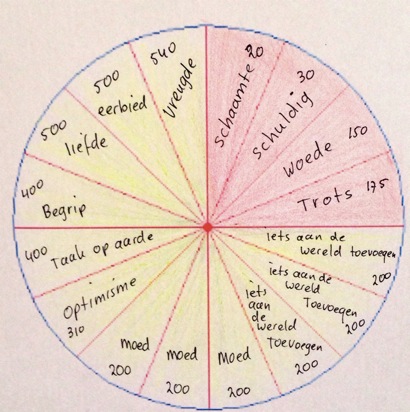 20
schaamte
30
schuldig
150
woede
Trots 175
Iets aan de
wereld toevoegen
200
iets aan de
wereld
Toevoegen
200
iets
aan
de
wereld
Toevoegen
200
Moed
200
Moed
200
Moed
200
Optimisme
310
Taak op aarde
400
Begrip
400
liefde
500
eerbied
500
vreugde
540